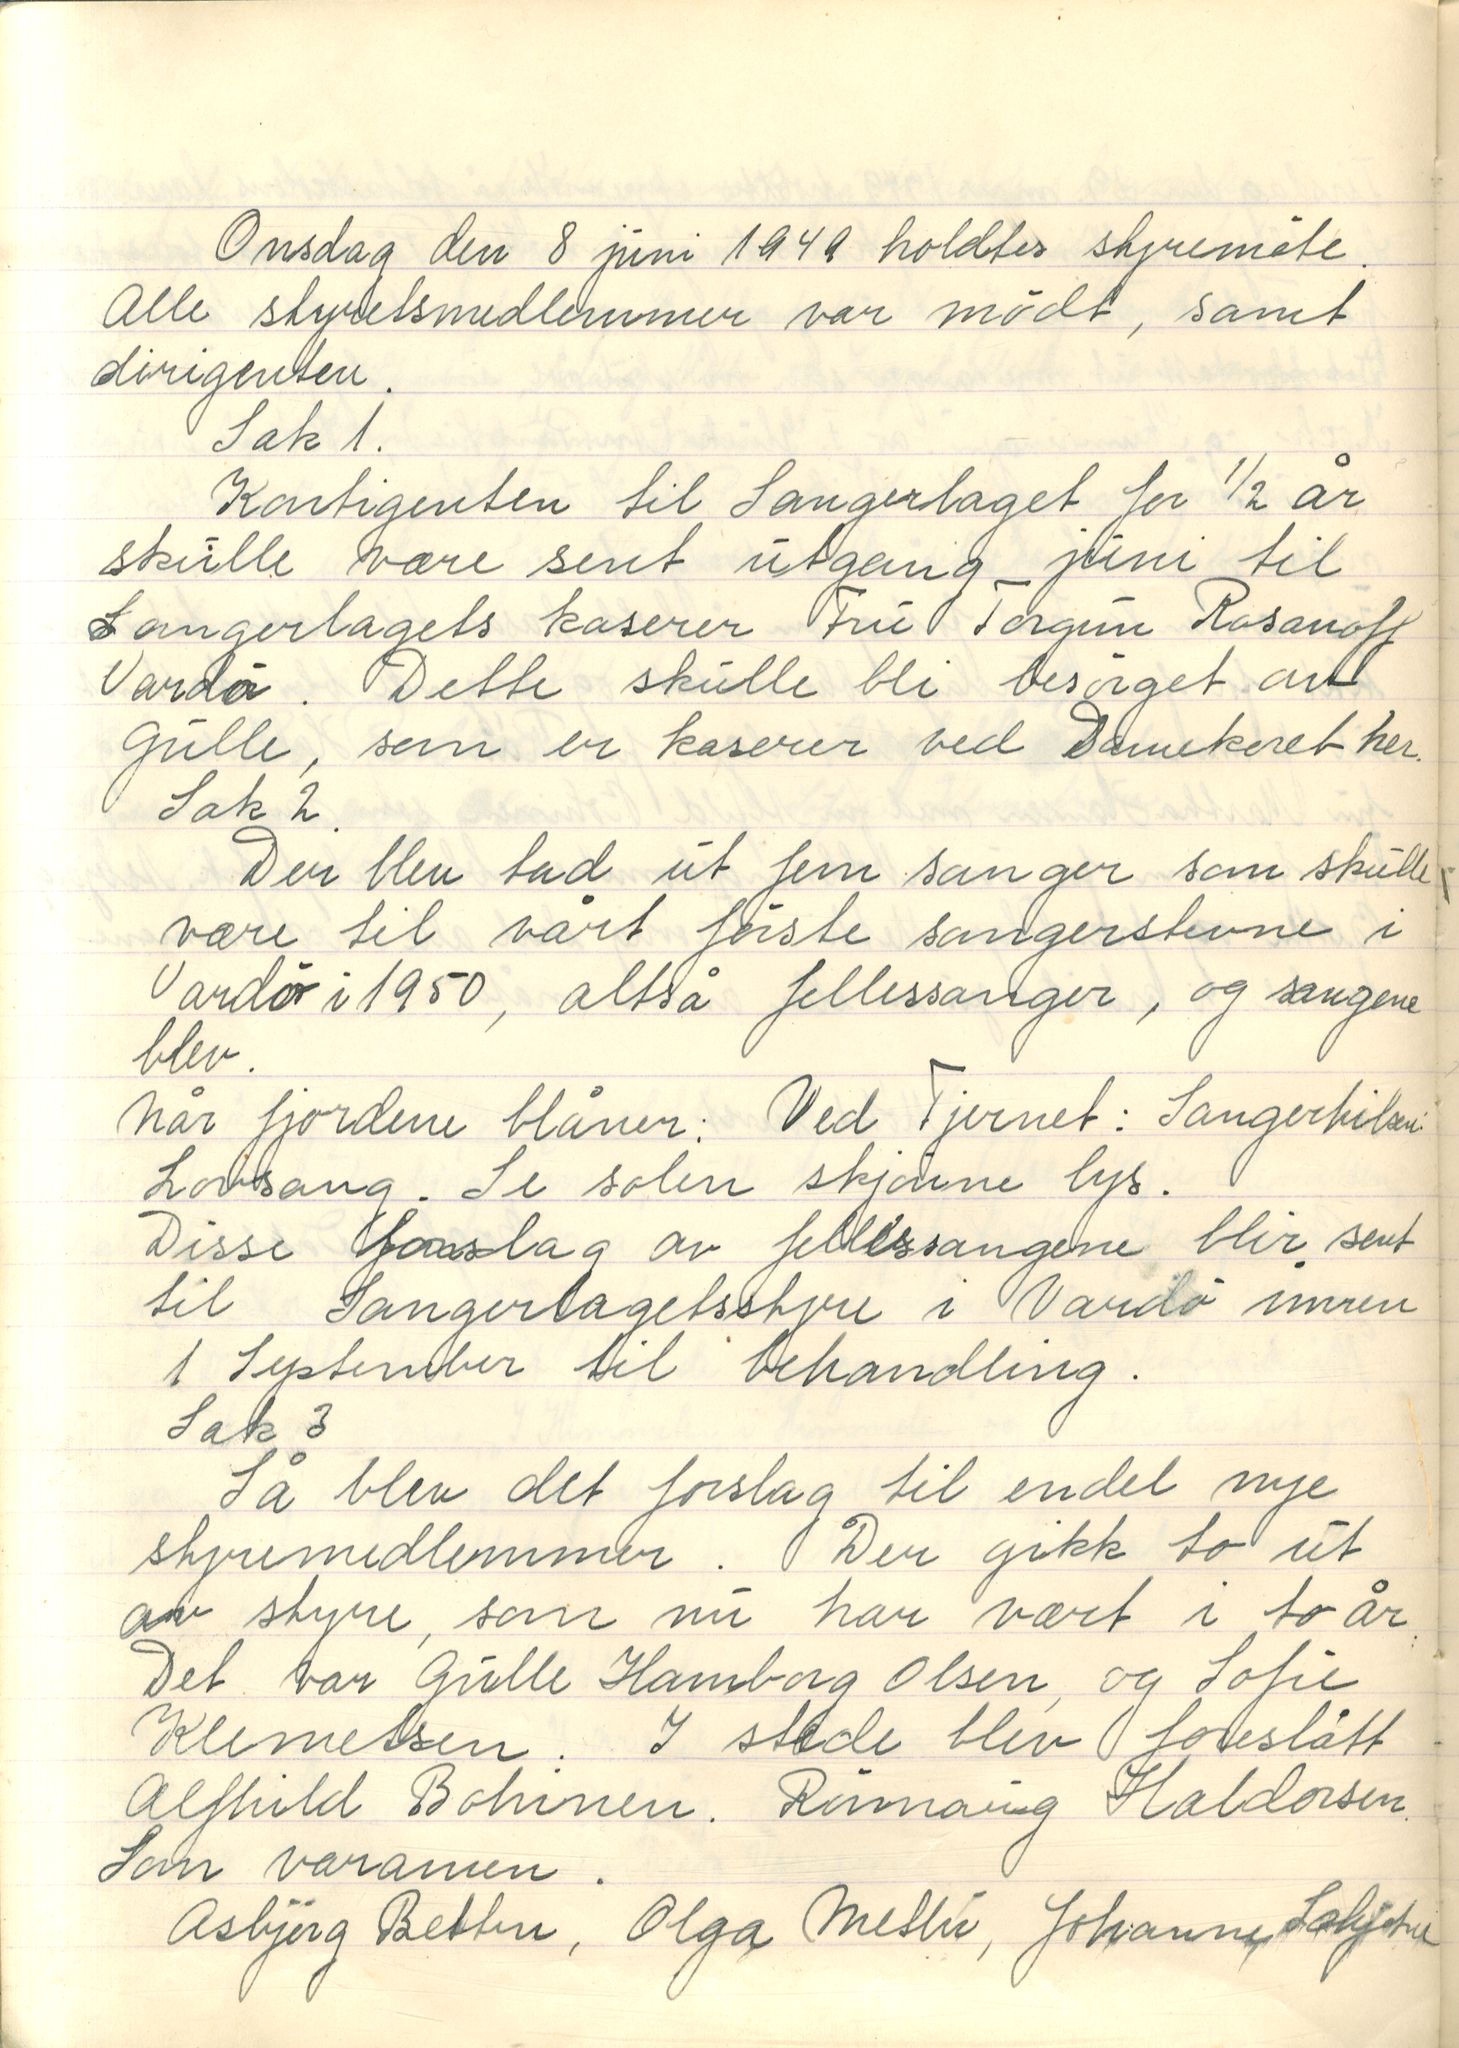 Onsdag den 8 juni 1949 holdtes styremöte.
Alle styretsmedlemmer var mödt, samt
dirigenten.
Sak 1.
Kontigenten til Sangerlaget for 1/2 år
skulle være sent utgang juni til
Sangerlagets kaserer Fru Torgun Rosanoff
Vardö. Dette skulle bli besörget av
Gulle, som er kaserer ved Damekoret her.
Sak 2.
Der blev tad ut fem sanger som skulle
være til vårt förste sangerstevne i
Vardö i 1950, altså fellessanger, og sangene
blev.
Når fjordene blåner: Ved Tjernet: Sangerhilsen:
Lovsang. Se solen skjönne lys.
Disse forslag av fellessangene blir sent
til Sangerlagetsstyre i Vardö innen
1 September til behandling.
Sak 3
Så blev det forslag til endel nye
styremedlemmer. Der gikk to ut
av styre, som nu har vært i to år.
Det var Gulle Hamborg Olsen, og Sofie
Klemetsen. I stede blev foreslått
Alfhild Bohinen. Rönnaug Haldorsen.
Som varamen.
Asbjörg Betten, Olga Mellu, Johanne